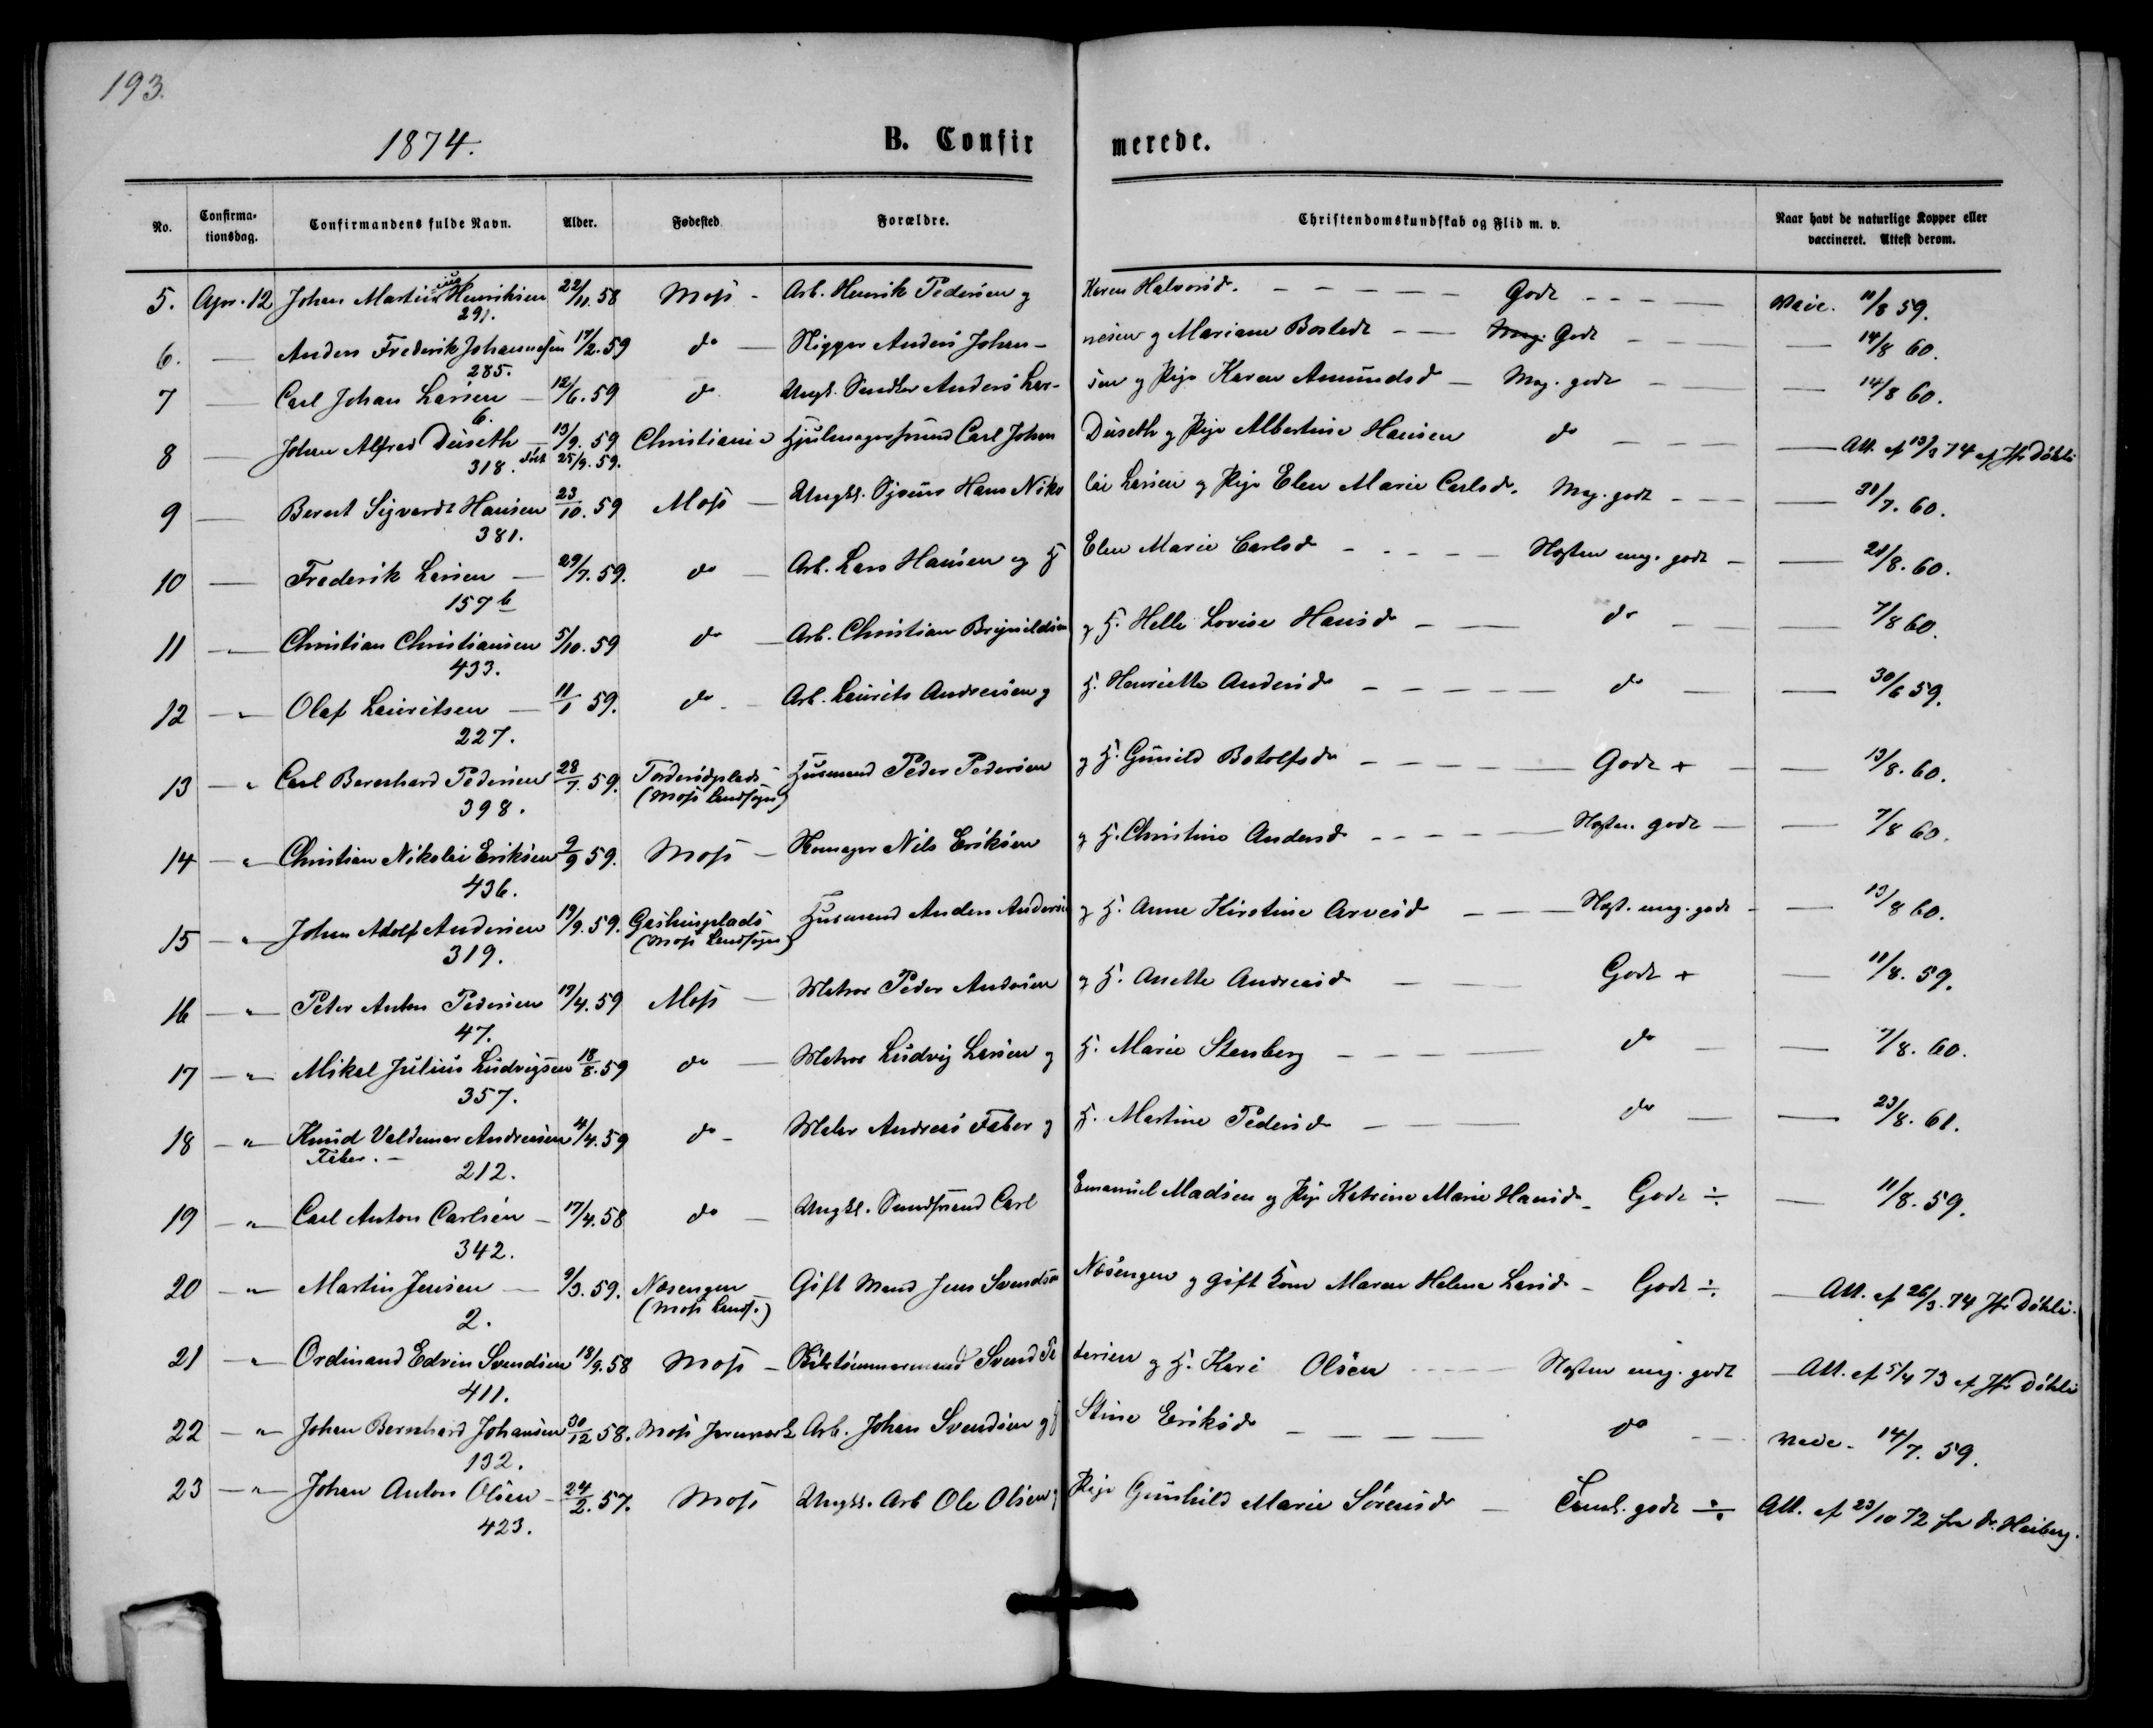 193.
1874.
B. Confirmerede.
No. Confirmationsdag. Confirmandens fulde Navn. Alder. Fødested Forældre. Christendomskundskab og Flid m. v. Naar havt de naturlige Kopper eller vaccineret. Attest derom.
5. Apr. 12 Johan Martinius Henriksen 22/11. 58 Moss - Arb. Henrik Pedersen og Karen Halvorsd. Godt Vacc. 11/8 59.
291.
6. — Anders Frederik Johannesen 17/2. 59 do Anders Johannesen og Mariane Bostedt Mg. Godt 14/8 60.
285.
7 — Carl Johan Larsen 12/6. 59 do Ungk. Anders Larsen og Pige Karen Amundsd Mg. godt 14/8 60.
6.
8 — Johan Alfred Düseth 13/9. 59 Christiania Hjulmagersvend Carl Johan Düseth og Pige Albertine Hansen do Att. af 13/3 74 af Hr Döhli
318. døbt 25/9. 59.
9 — Bernt Sigvardt Hansen 23/10. 59 Moss Ungkl. Hans Nikolai Larsen og Pige Elen Marie Carlsd. Mg. godt 31/7. 60.
381.
10 — Frederik Larsen 29/7. 59. do Arb. Lars Hansen og H Elen Marie Carlsd Næsten mg. godt 21/8. 60.
157 b
11 — Christian Christiansen 5/10. 59 do Arb. Christian Brynildsen og H. Helle Lovise Hansd do 7/8 60.
433.
12 — Olaf Lauritsen 11/1 59. do Arb. Laurits Andresen og H. Henriette Andersd do 30/6 59.
227.
13 — Carl Bernhard Pedersen 28/7. 59. Husmand Peder Pedersen og H. Gunild Botolfsd Godt + 13/8. 60.
398. (Moss Landsogn)
14 — Christian Nikolai Eriksen 9/9 59. Moss Nils Eriksen og H. Christine Andersd Næsten godt 7/8 60.
436.
15 — Johan Adolf Andersen 19/9. 59. Husmand Anders Andersen og H. Anne Kirstine Arvesd Næst. mg. godt 13/8 60.
319. (Moss Landsogn)
16 — Peter Anton Pedersen 17/4. 59 Moss Matros Peder Andersen og H. Anette Andreasd Godt + 11/8. 59.
47.
17 — Mikal Julius Ludvigsen 18/8. 59 do Matros Ludvig Larsen og H. Marie Stenberg do 7/8. 60.
357.
18 — Knud Valdemar Andresen 4/4. 59 do Maler Andreas Faber og H. Martine Pedersd do 23/8. 61.
Faber. 212.
19 — Carl Anton Carlsen 17/4. 58 do Ungkl. Carl Emanuel Madsen og Pige Katrine Marie Hansd Godt ÷ 11/8. 59.
342.
20 — Martin Jensen 9/3. 59. Næsengen Gift Mand Jens Svendsen Næsengen og gift Kone Maren Helene Larsd Godt ÷ Att. af 26/3. 74 Hr Döhli.
2. (Moss Lands.)
21 — Ordinand Edvin Svendsen 18/9. 58 Moss Svend Petersen og H. Kari Olsen Næsten mg. godt Att. af 5/4 73 af Hr Döhli
411.
22 — Johan Bernhard Johansen 30/12 58. Moss Jernværk Arb. Johan Svendsen og H Stine Eriksd do Vacc. 14/7. 59.
132.
23 — Johan Anton Olsen 24/2. 57. Moss Ungkl. Arb Ole Olsen og Pige Gunhild Marie Sörensd Teml. godt ÷ Att. af 23/10 72 fra Dr. Heiberg.
423.